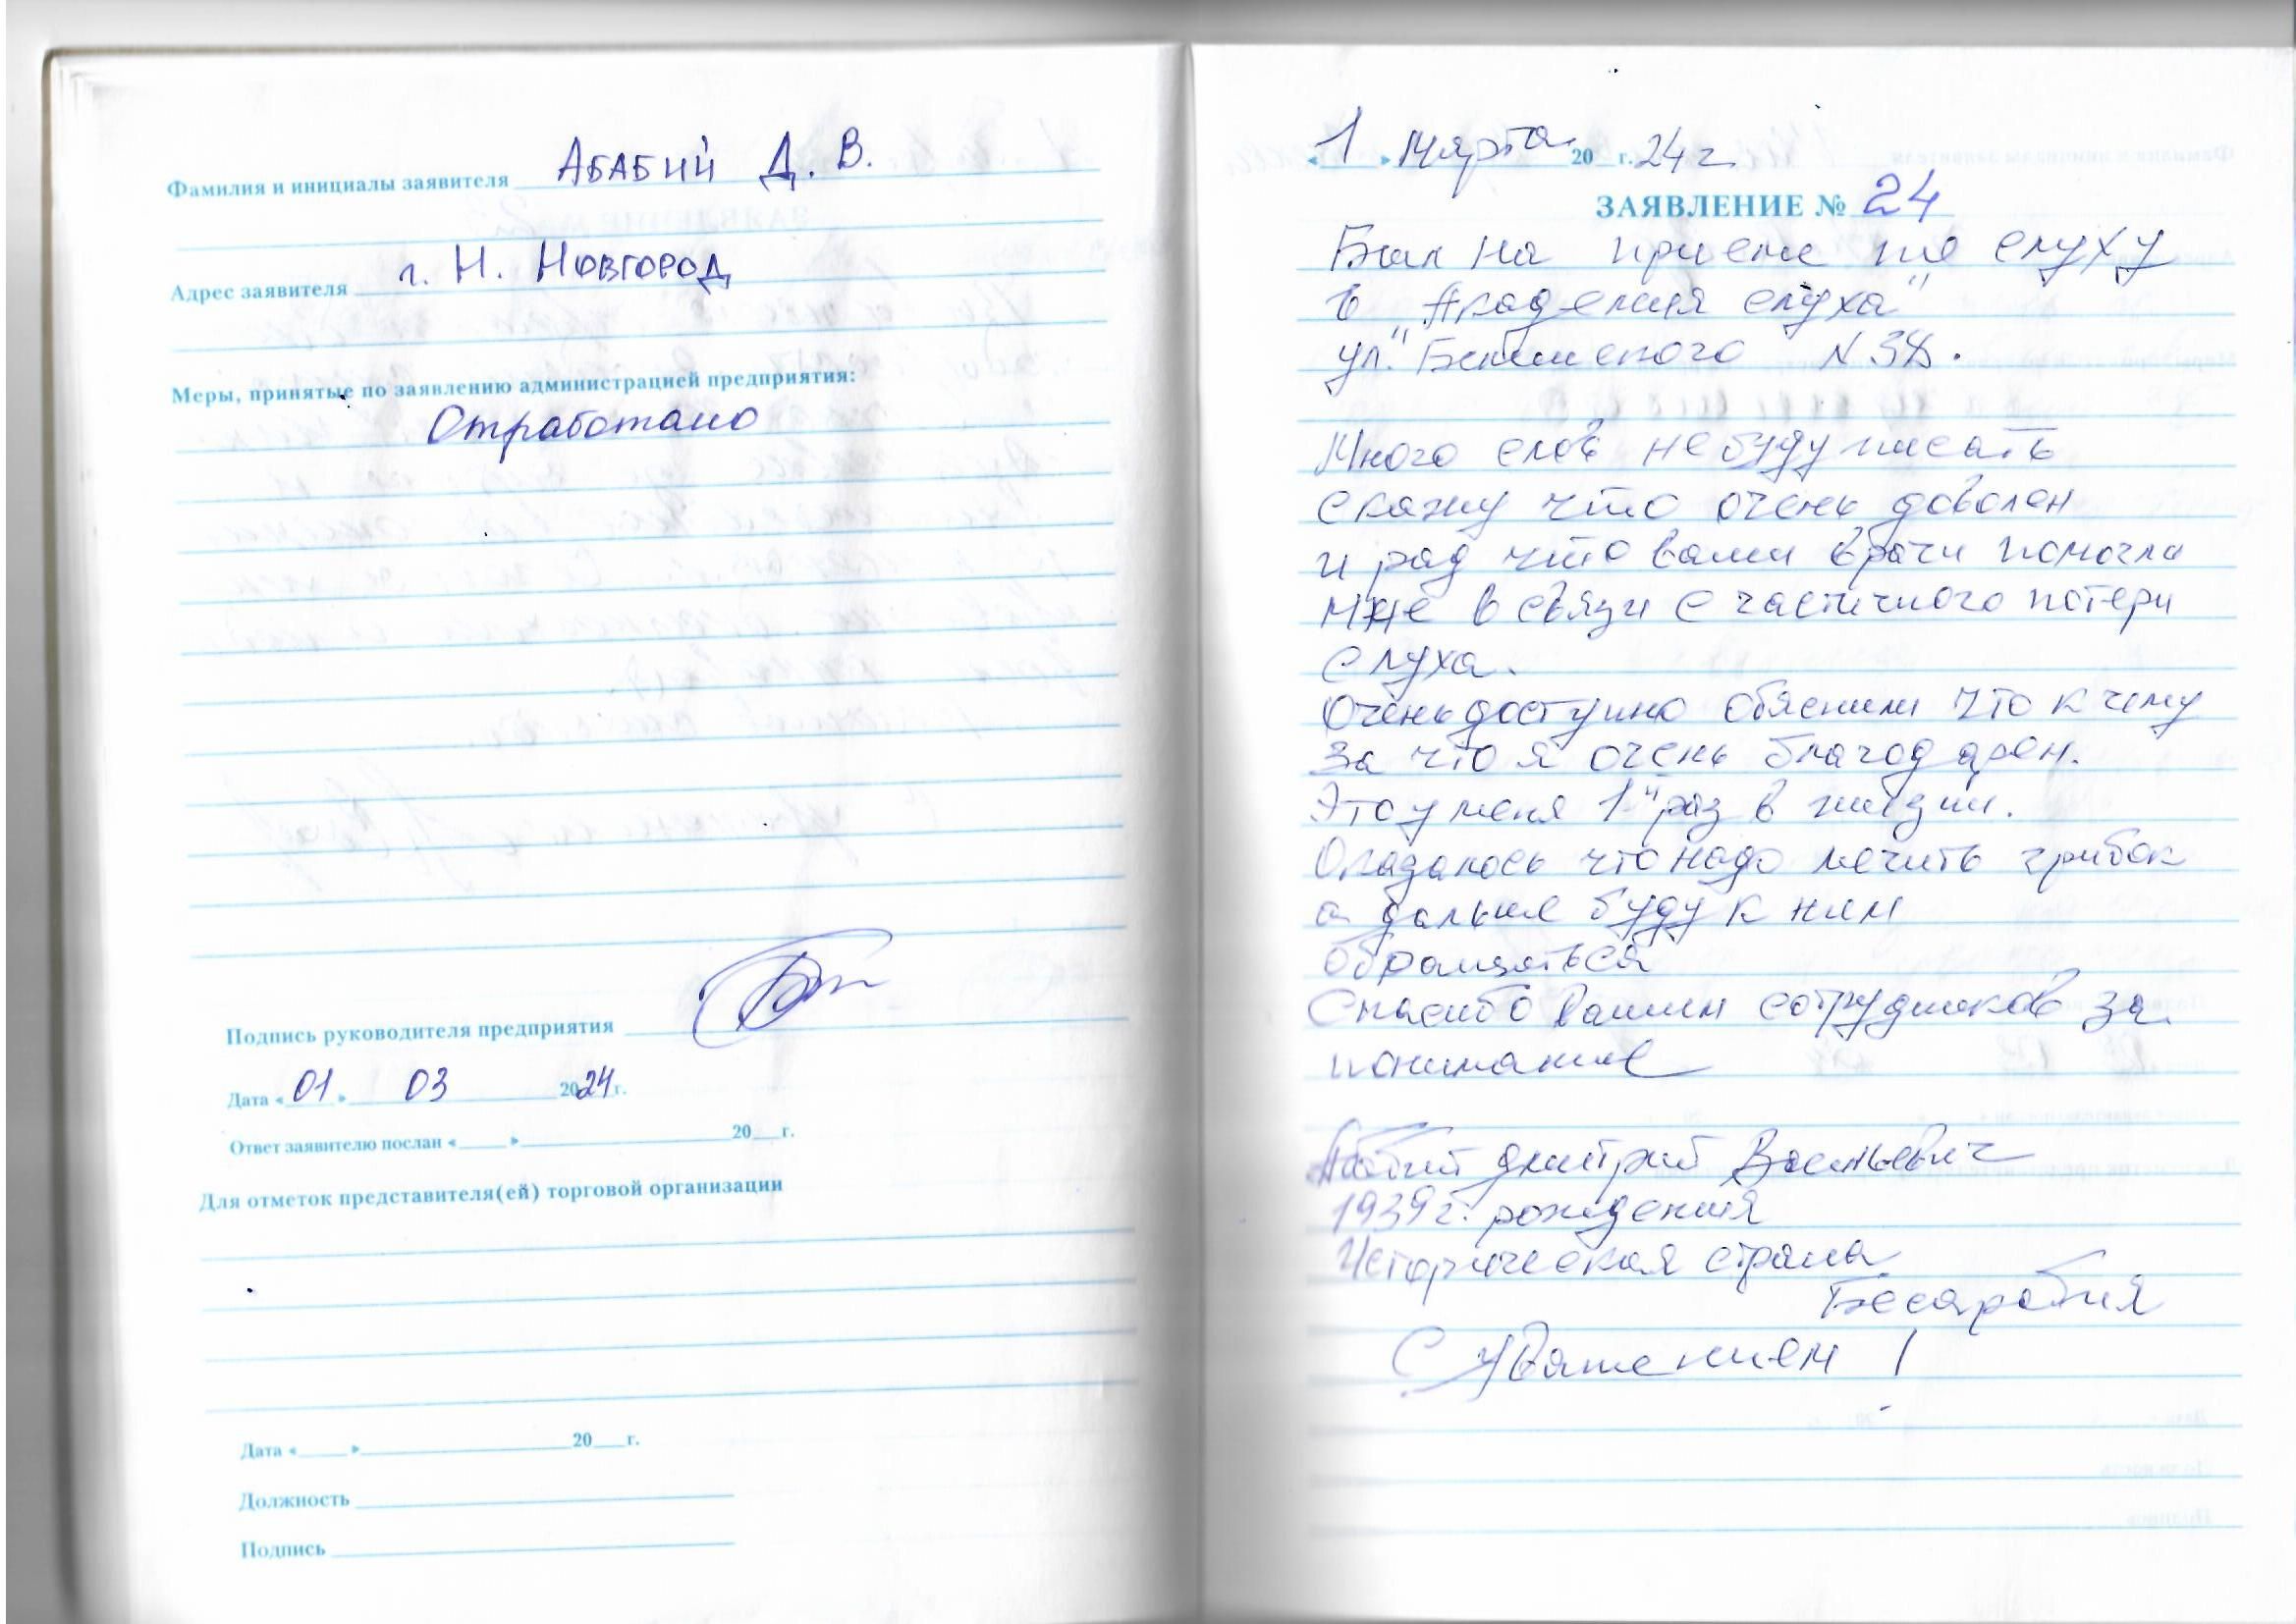 Фамилия и инициалы заявителя АБАБИЙ Д. В.
Адрес заявителя г. Н. НОВГОРОД
Меры, принятые по заявлению администрацией предприятия:
Отработано
Подпись руководителя предприятия
Дата «01» 03 2024 г.
Ответ заявителю послан «____» ____ 20__г.
Для отметок представителя(ей) торговой организации
Дата «____» ____ 20__г.
Должность
Подпись
«1» Марта 20 г. 24 г.
ЗАЯВЛЕНИЕ № 24
Был на приеме по слуху
в "Академия слуха"
ул." N 38.
Много слов не буду писать
скажу что очень доволен
и рад что ваши врачи помогли
мне в связи с частичного потери
слуха.
Очень доступно обяснили что к чему
за что я очень благодарен.
Это у меня 1й раз в жизни.
Оказалось что надо лечить грибок
а дальше буду к ним
обращаться
Спасибо вашим сотрудников за
понимание
Абабий Дмитрий Васильевич
1939 г. рождения
Историческая страна
Бесарабия
С уважением !